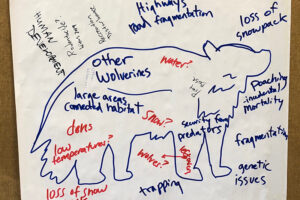 Highways
road fragmentation
loss of
snowpack
HUMAN
DEVELOPMENT
other
Wolverines
water?
Prey
Base
large areas
connected habitat
Poaching
incidental
mortality
snow?
dens
security from
predators
low
temperatures?
water?
fragmentation
genetic
issues
trapping
loss of snow